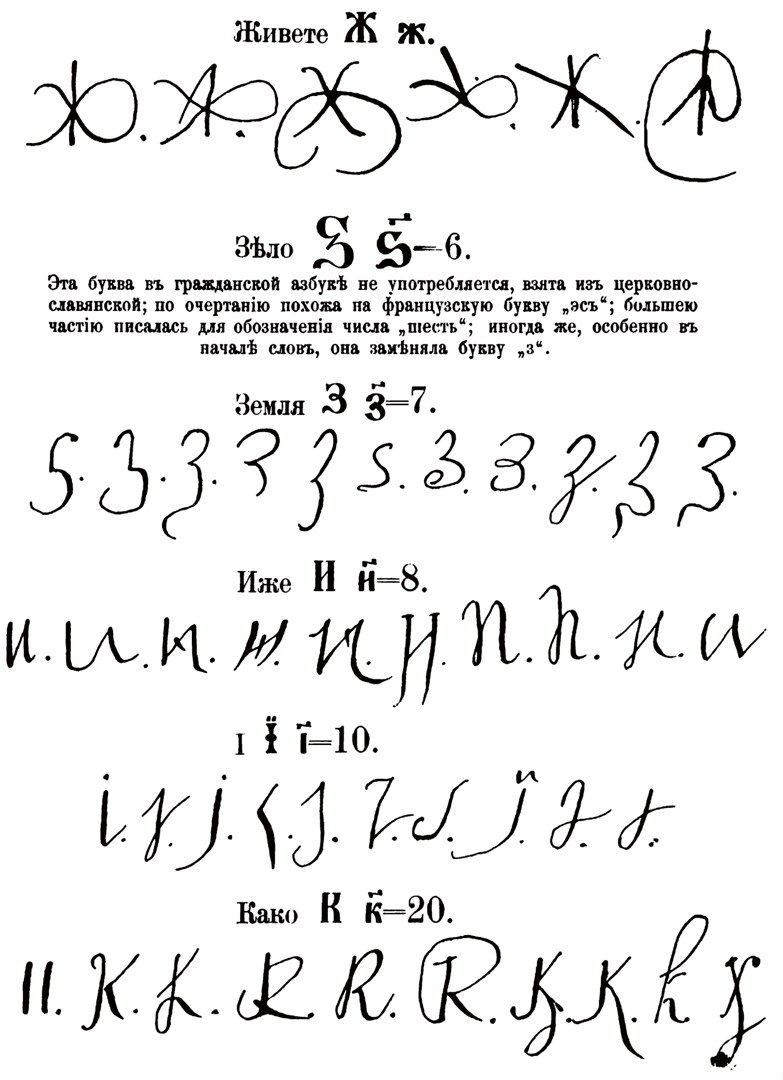 Живете Ж ж.
Ж. Ж. Ж Ж. Ж. Ж
Зѣло Ѕ ѕ҃=6.
Эта буква въ гражданской азбукѣ не употребляется, взята изъ церковно-
славянской; по очертанію похожа на французскую букву „эсъ“; большею
частію писалась для обозначенія числа „шесть“; иногда же, особенно въ
началѣ словъ, она замѣняла букву „з“.
Земля З з҃=7.
З. З. З. З З З. З. З. З. З З.
Иже И и҃=8.
И. И. И. И. И. И. И. И. И. И
I Ї і҃=10.
І. І. І. І. І. І. І. І. І. І.
Како К к҃=20.
К. К. К. К. К. К. К. К. К К